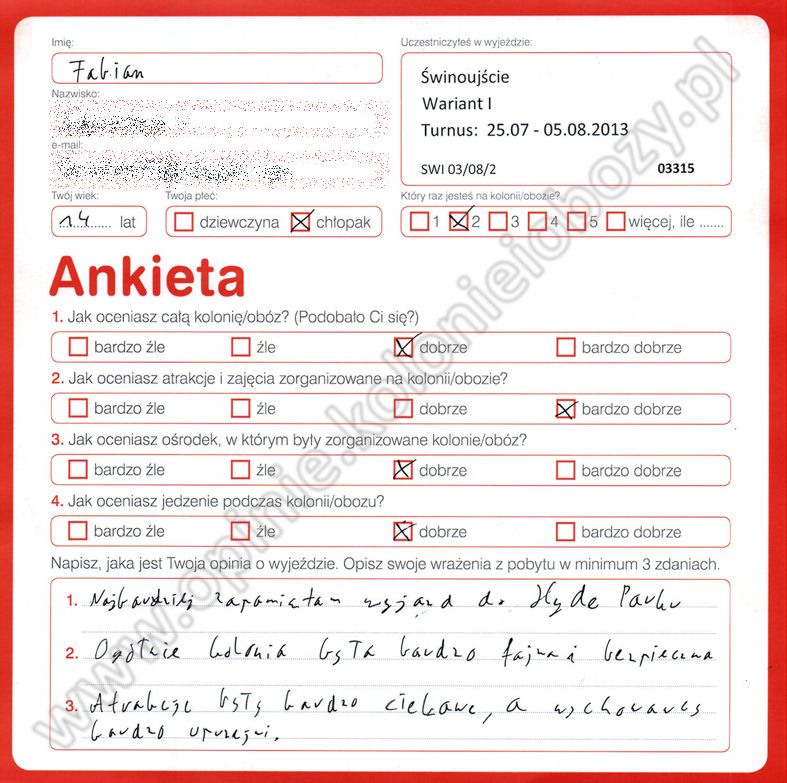 Imię:
Fabian
Nazwisko:
e-mail:
Twój wiek:
14 lat
Twoja płeć:
dziewczyna chłopak
Uczestniczyłeś w wyjeździe:
Świnoujście
Wariant I
Turnus: 25.07 - 05.08.2013
SWI 03/08/2 03315
Który raz jesteś na kolonii/obozie?
1 2 3 4 5 więcej, ile .......
Ankieta
1. Jak oceniasz całą kolonię/obóz? (Podobało Ci się?)
bardzo źle źle dobrze bardzo dobrze
2. Jak oceniasz atrakcje i zajęcia zorganizowane na kolonii/obozie?
bardzo źle źle dobrze bardzo dobrze
3. Jak oceniasz ośrodek, w którym były zorganizowane kolonie/obóz?
bardzo źle źle dobrze bardzo dobrze
4. Jak oceniasz jedzenie podczas kolonii/obozu?
bardzo źle źle dobrze bardzo dobrze
Napisz, jaka jest Twoja opinia o wyjeździe. Opisz swoje wrażenia z pobytu w minimum 3 zdaniach.
1. Najbardziej zapamiętam wyjazd do Hyde Parku
2. Ogólnie kolonia była bardzo fajna i bezpieczna
3. Atrakcje były bardzo ciekawe, a wychowawcy
bardzo uprzejmi.
www.opinie.kolonieiobozy.pl